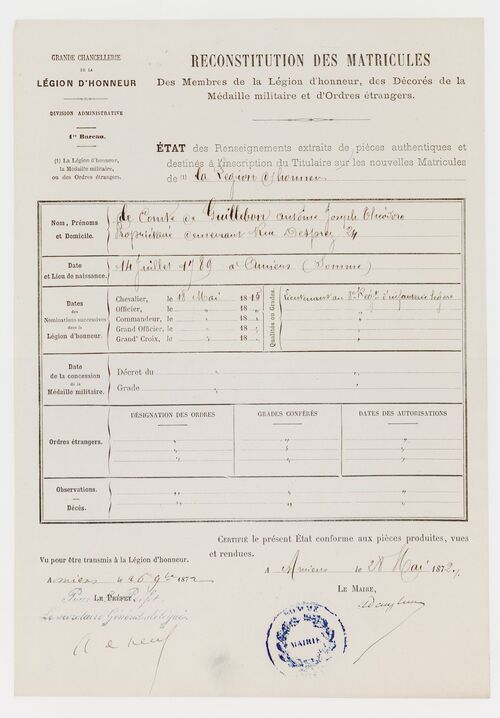 GRANDE CHANCELLERIE
DE LA
LÉGION D'HONNEUR
DIVISION ADMINISTRATIVE
1er Bureau.
(1) La Légion d'honneur,
la Médaille militaire,
ou des Ordres étrangers.
RECONSTITUTION DES MATRICULES
Des Membres de la Légion d'honneur, des Décorés de la
Médaille militaire et d'Ordres étrangers.
ÉTAT des Renseignements extraits de pièces authentiques et
destinés à l'inscription du Titulaire sur les nouvelles Matricules
de (1) la Légion d'honneur
Nom, Prénoms
et Domicile.
de Guillebon Joseph Théodore
Propriétaire demeurant Rue Desprez 24
Date
et Lieu de naissance.
14 Juillet 1789 à Amiens (Somme)
Dates
des
Nominations successives
dans la
Légion d'honneur.
Chevalier, le 18 Mai 1815
Officier, le " 18 "
Commandeur, le " 18 "
Grand Officier, le " 18 "
Grand' Croix, le " 18 "
Qualités ou Grades.
Lieutenant au Regt d'infanterie légère
Date
de la concession
de la
Médaille militaire.
Décret du "
Grade "
Ordres étrangers.
DÉSIGNATION DES ORDRES
GRADES CONFÉRÉS
DATES DES AUTORISATIONS
" " "
" " "
" " "
Observations.
—
Décès.
" "
" "
CERTIFIÉ le présent État conforme aux pièces produites, vues
et rendues.
A Amiens le 28 Mai 1872.
LE MAIRE,
Vu pour être transmis à la Légion d'honneur.
Amiens le 26 9bre 1872
Pour LE PRÉFET
Le Secrétaire Général délégué
SOMME
MAIRIE